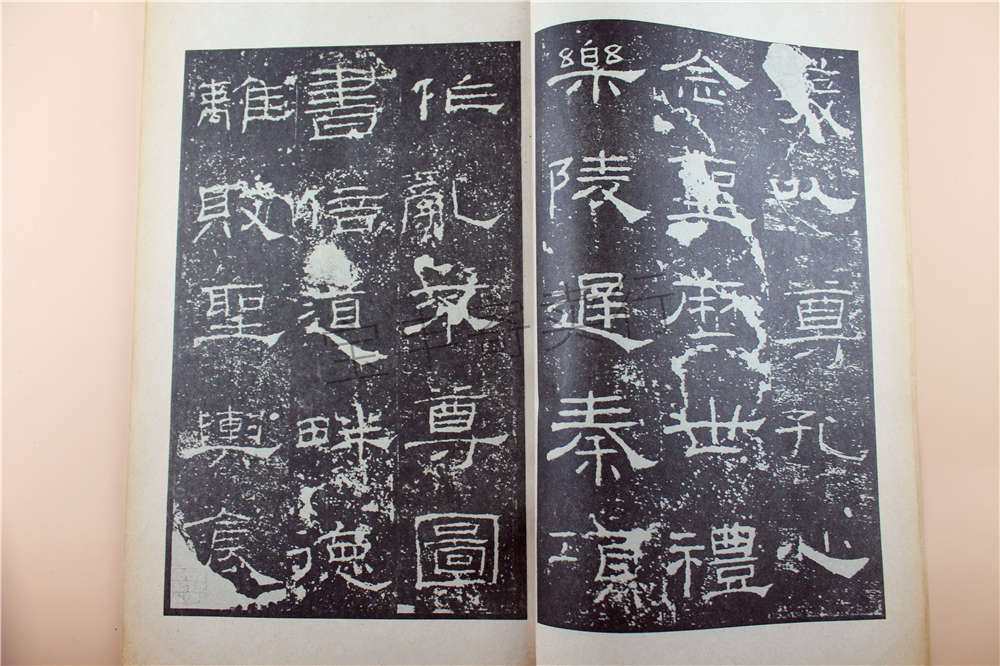 發以尊孔心
念聖歷世禮
樂陵遲秦項
作亂不尊圖
書倍道畔德
離敗聖輿食